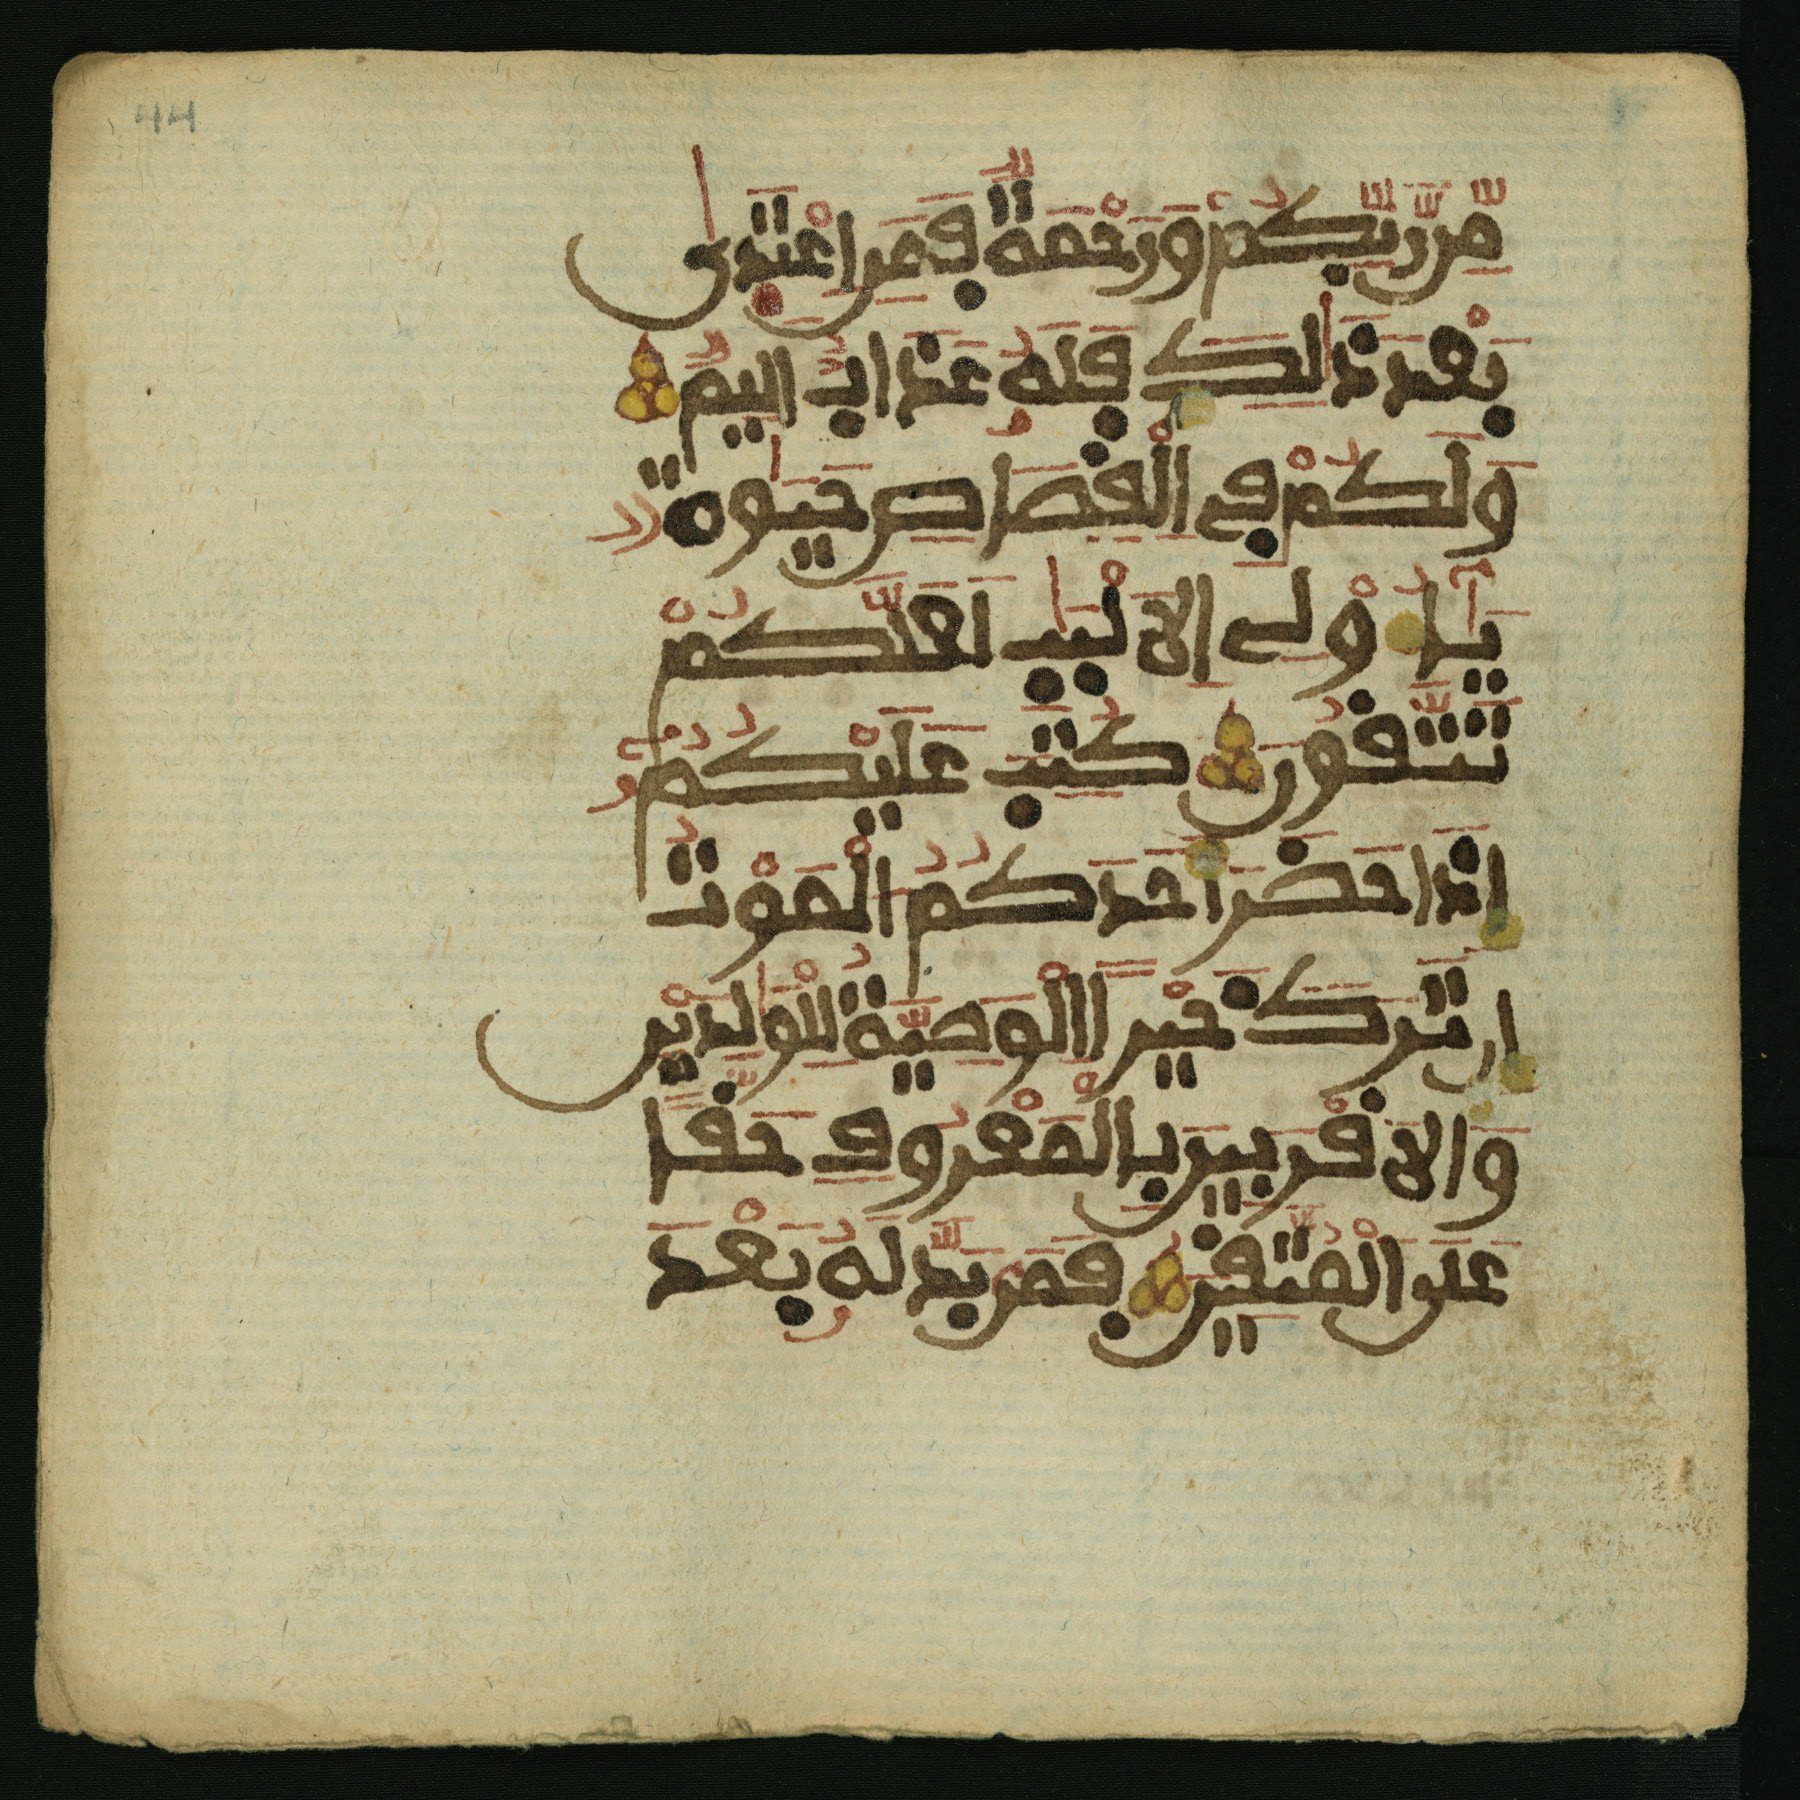 44
مِّن رَّبِّكُمْ وَرَحْمَةٌ ڢَمَنِ اعْتَدٜى
بَعْدَ ذَٰلِكَ ڢَلَهُۥ عَذَابٌ اَلِيمٌ
وَلَكُمْ ڢِے اِ۬لْفِصَاصِ حَيَوٰةٌ
يَٰٓأُوْلِے اِ۬لَالْبَٰبِ لَعَلَّكُمْ
تَتَّفُونَ كُتِبَ عَلَيْكُمُۥٓ
إِذَا حَضَرَ أَحَدَكُمُ اُ۬لْمَوْتُ
إِن تَرَكَ خَيْراً اِ۬لْوَصِيَّةُ لِلْوَٰلِدَيْنِ
وَالَافْرَبِينَ بِالْمَعْرُوڢِ حَفّاً
عَلَى اَ۬لْمُتَّفِينَ ڢَمَنۢ بَدَّلَهُۥ بَعْدَ